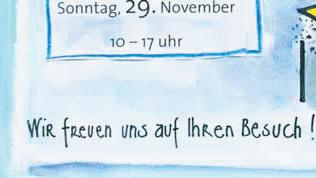 Sonntag, 29. November
10 – 17 uhr
Wir freuen uns auf Ihren Besuch !